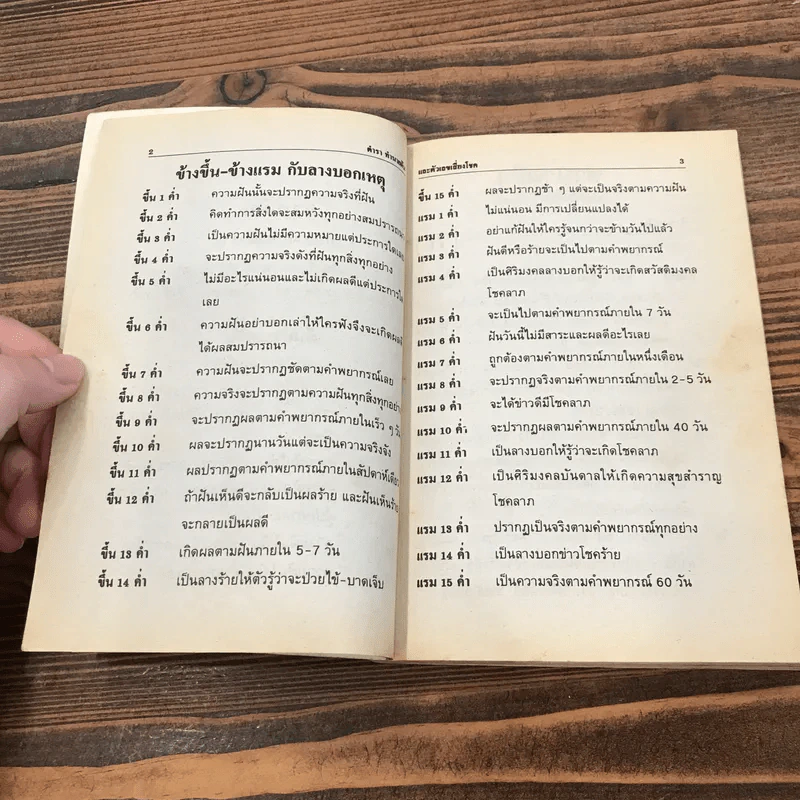 2
ตำรา
ข้างขึ้น-ข้างแรม กับลางบอกเหตุ
ขึ้น 1 ค่ำ ความฝันนั้นจะปรากฏความจริงที่ฝัน
ขึ้น 2 ค่ำ คิดทำการสิ่งใดจะสมหวังทุกอย่างสมปรารถนา
ขึ้น 3 ค่ำ เป็นความฝันไม่มีความหมายแต่ประการใดเลย
ขึ้น 4 ค่ำ จะปรากฏความจริงดังที่ฝันทุกสิ่งทุกอย่าง
ขึ้น 5 ค่ำ ไม่มีอะไรแน่นอนและไม่เกิดผลดีแต่ประการใด
เลย
ขึ้น 6 ค่ำ ความฝันอย่าบอกเล่าให้ใครฟังจึงจะเกิดผล
ได้ผลสมปรารถนา
ขึ้น 7 ค่ำ ความฝันจะปรากฏชัดตามคำพยากรณ์เลย
ขึ้น 8 ค่ำ ความจริงจะปรากฏตามความฝันทุกสิ่งทุกอย่าง
ขึ้น 9 ค่ำ จะปรากฏผลตามคำพยากรณ์ภายในเร็ว ๆ วัน
ขึ้น 10 ค่ำ ผลจะปรากฏนานวันแต่จะเป็นความจริงจัง
ขึ้น 11 ค่ำ ผลปรากฏตามคำพยากรณ์ภายในสัปดาห์เดียว
ขึ้น 12 ค่ำ ถ้าฝันเห็นดีจะกลับเป็นผลร้าย และฝันเห็นร้าย
จะกลายเป็นผลดี
ขึ้น 13 ค่ำ เกิดผลตามฝันภายใน 5-7 วัน
ขึ้น 14 ค่ำ เป็นลางร้ายให้ตัวรู้ว่าจะป่วยไข้-บาดเจ็บ
และตัวเลขเสี่ยงโชค 3
ขึ้น 15 ค่ำ ผลจะปรากฏช้า ๆ แต่จะเป็นจริงตามความฝัน
แรม 1 ค่ำ ไม่แน่นอน มีการเปลี่ยนแปลงได้
แรม 2 ค่ำ อย่าแก้ฝันให้ใครรู้จนกว่าจะข้ามวันไปแล้ว
แรม 3 ค่ำ ฝันดีหรือร้ายจะเป็นไปตามคำพยากรณ์
แรม 4 ค่ำ เป็นศิริมงคลลางบอกให้รู้ว่าจะเกิดสวัสดิมงคล
โชคลาภ
แรม 5 ค่ำ จะเป็นไปตามคำพยากรณ์ภายใน 7 วัน
แรม 6 ค่ำ ฝันวันนี้ไม่มีสาระและผลดีอะไรเลย
แรม 7 ค่ำ ถูกต้องตามคำพยากรณ์ภายในหนึ่งเดือน
แรม 8 ค่ำ จะปรากฏจริงตามคำพยากรณ์ภายใน 2-5 วัน
แรม 9 ค่ำ จะได้ข่าวดีมีโชคลาภ
แรม 10 ค่ำ จะปรากฏผลตามคำพยากรณ์ภายใน 40 วัน
แรม 11 ค่ำ เป็นลางบอกให้รู้ว่าจะเกิดโชคลาภ
แรม 12 ค่ำ เป็นศิริมงคลบันดาลให้เกิดความสุขสำราญ
โชคลาภ
แรม 13 ค่ำ ปรากฏเป็นจริงตามคำพยากรณ์ทุกอย่าง
แรม 14 ค่ำ เป็นลางบอกข่าวโชคร้าย
แรม 15 ค่ำ เป็นความจริงตามคำพยากรณ์ 60 วัน